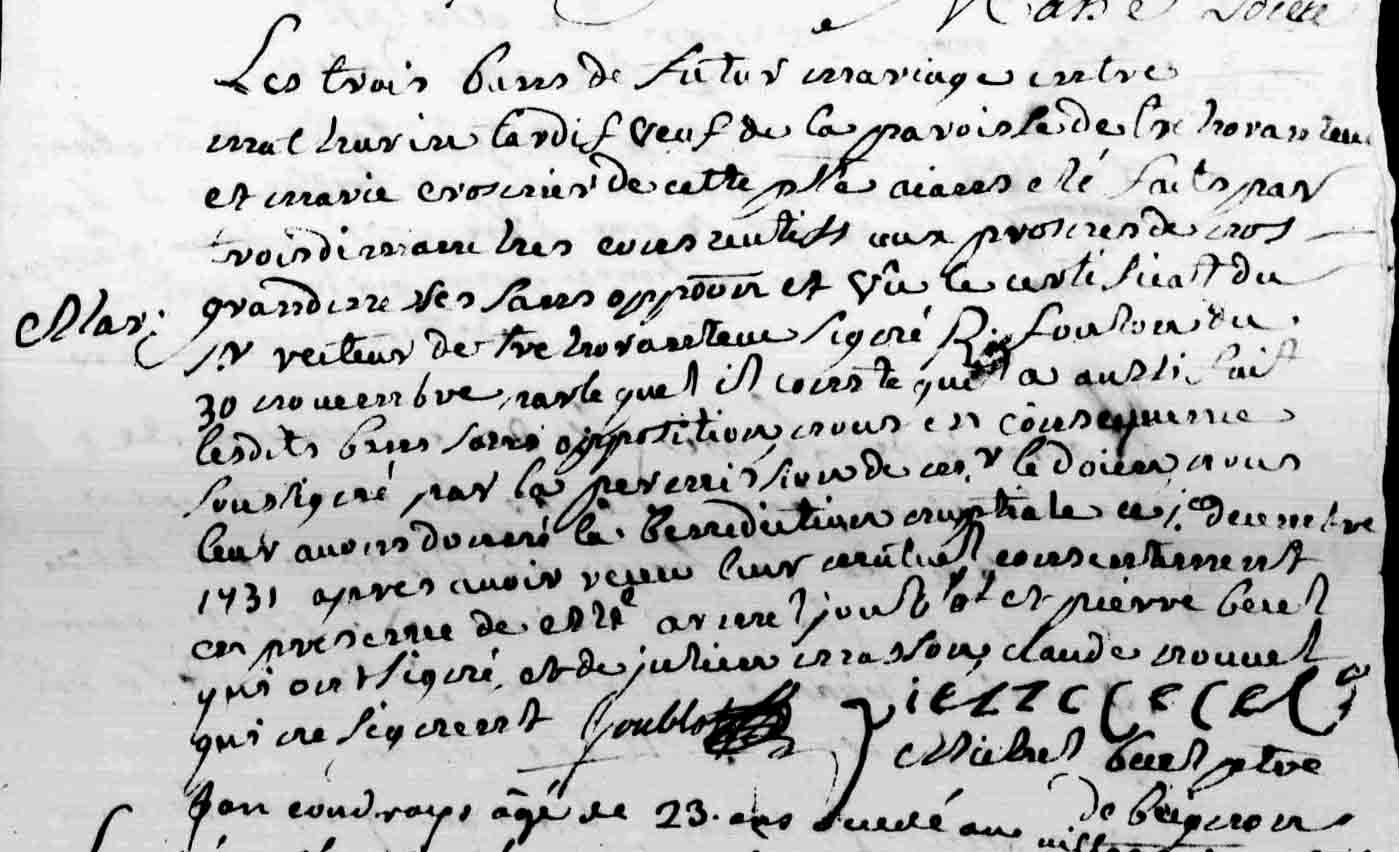 Les trois bans de futur mariage entre
mathurin tardif veuf de la paroisse de trehoranteuc
et marie crosnier de cette psse aians été faits par
trois dimanches consecutifs aux prosnes de nos
grandmesses sans opp̄on et Vû le certificat du
Mari:
Sr recteur de trehoranteuc signé foulon du
30 novembre, par lequel il conste quil a aussi fait
lesdits bans sans opposition, nous en consequence
soussigné par la permission de mr le doien, nous
leur avons donné la benediction nuptiale ce j. decembre
1731 apres avoir receu leur mutuel consentement
en presence de armel joublot et pierre becel
qui ont signé, et de julien masson, claude nouvel
qui ne signent Joublot
Michel becel ptre
Jan coudrays âgé de 23. ans decedé au
de baignon